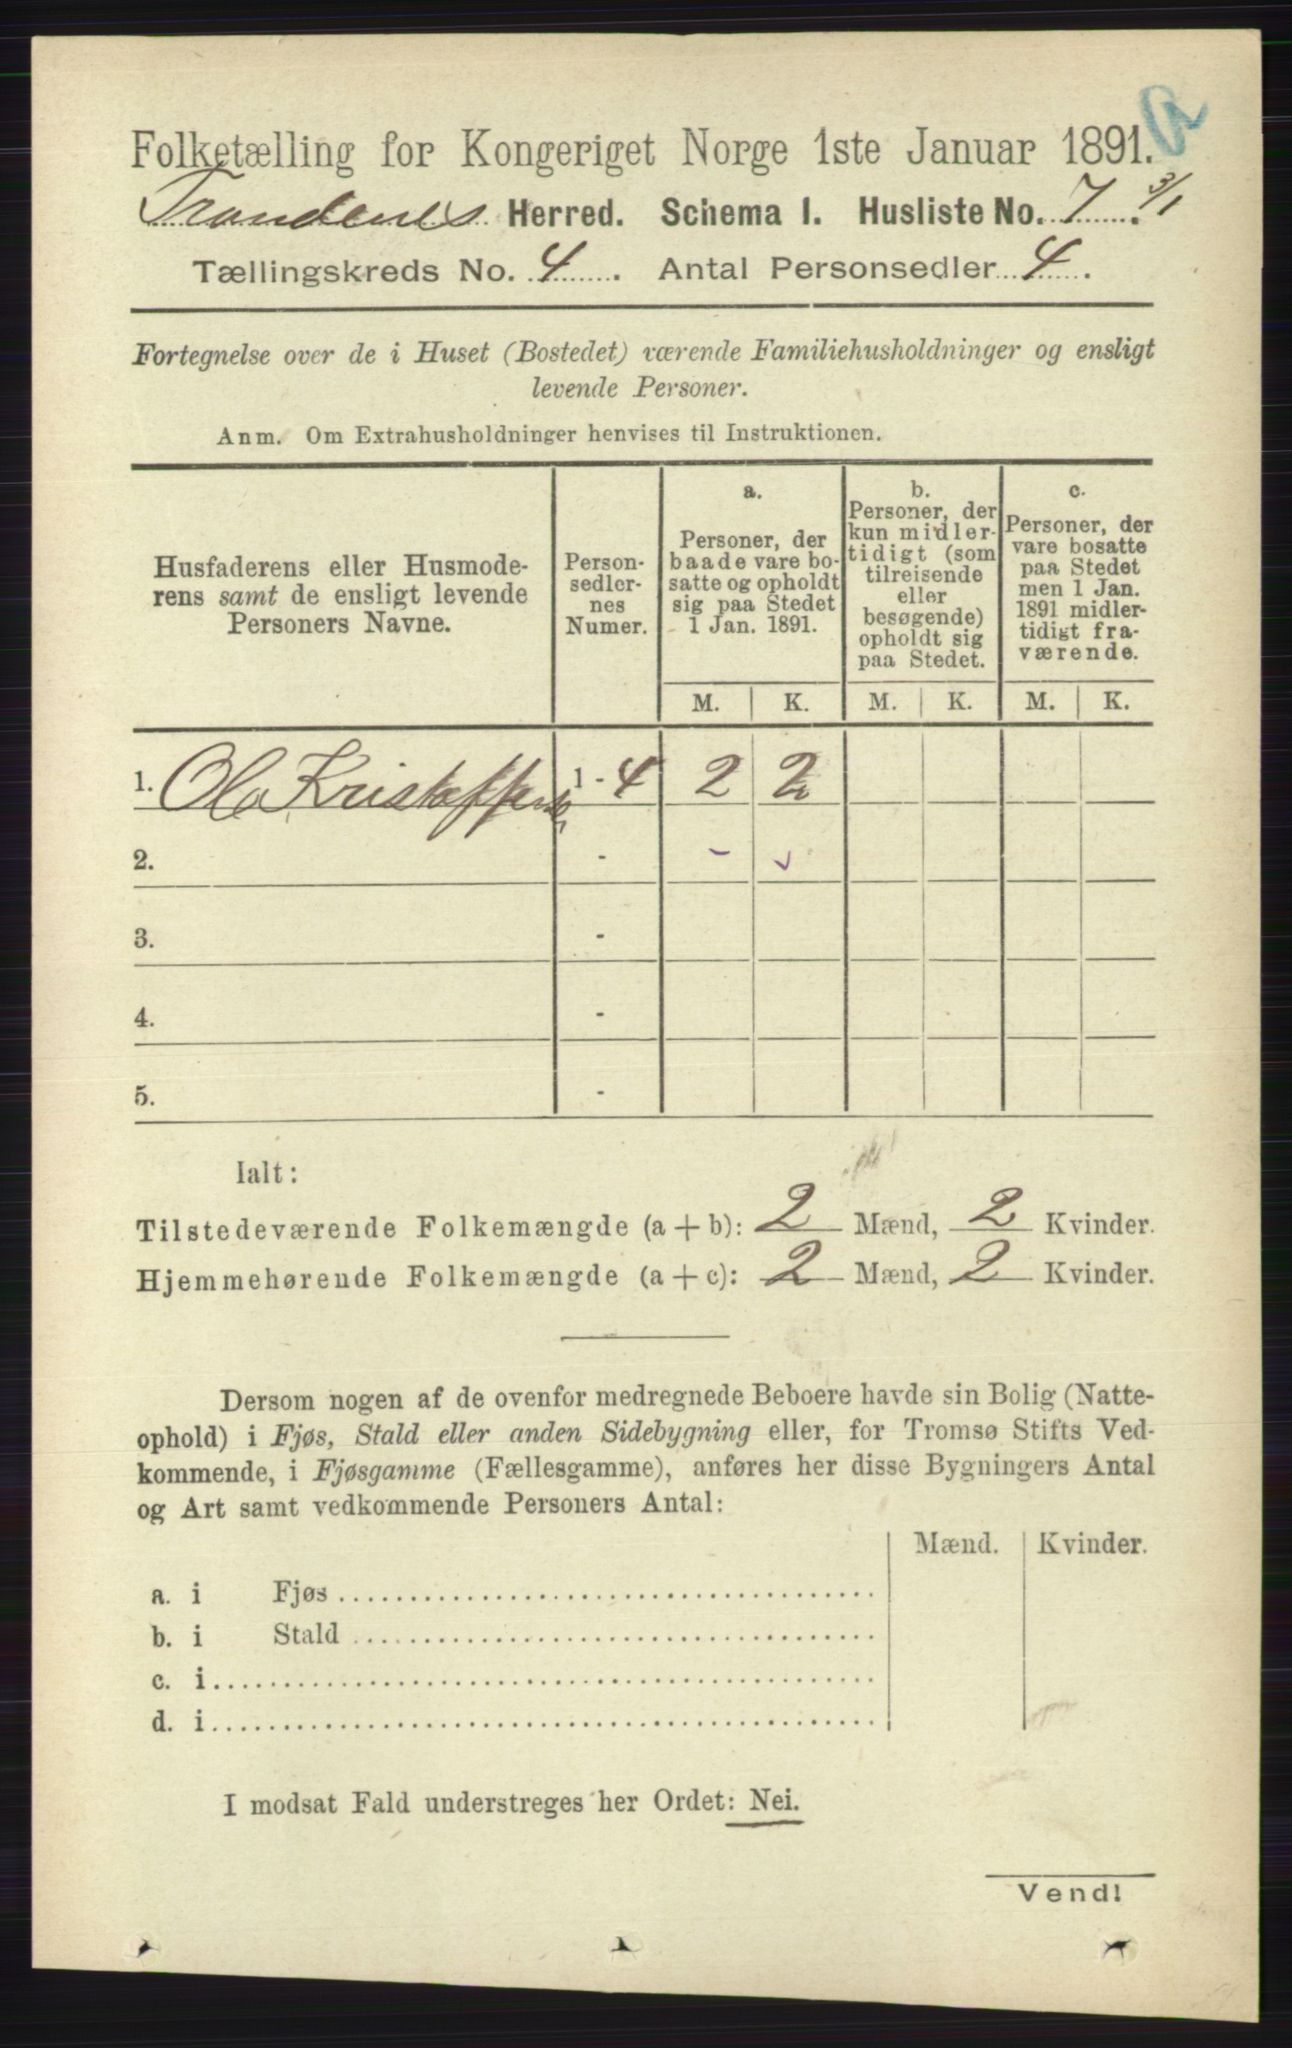 Folketælling for Kongeriget Norge 1ste Januar 1891.
Trondenes Herred. Schema I. Husliste No. 7. 3/1
Tællingskreds No. 4. Antal Personsedler 4.
Fortegnelse over de i Huset (Bostedet) værende Familiehusholdninger og ensligt
levende Personer.
Anm. Om Extrahusholdninger henvises til Instruktionen.
Husfaderens eller Husmode-
rens samt de ensligt levende
Personers Navne.
Person-
sedler-
nes
Numer.
a.
Personer, der
baade vare bo-
satte og opholdt
sig paa Stedet
1 Jan. 1891.
b.
Personer, der
kun midler-
tidigt (som
tilreisende
eller
besøgende)
opholdt sig
paa Stedet.
c.
Personer, der
vare bosatte
paa Stedet
men 1 Jan.
1891 midler-
tidigt fra-
værende.
M. K. M. K. M. K.
1. Ola Kristoffersen 1 - 4 2 2
2. -
3. -
4. -
5. -
Ialt:
Tilstedeværende Folkemængde (a + b): 2 Mænd, 2 Kvinder.
Hjemmehørende Folkemængde (a + c): 2 Mænd, 2 Kvinder.
Dersom nogen af de ovenfor medregnede Beboere havde sin Bolig (Natte-
ophold) i Fjøs, Stald eller anden Sidebygning eller, for Tromsø Stifts Ved-
kommende, i Fjøsgamme (Fællesgamme), anføres her disse Bygningers Antal
og Art samt vedkommende Personers Antal:
Mænd. Kvinder.
a. i Fjøs
b. i Stald
c. i
d. i
I modsat Fald understreges her Ordet: Nei.
Vend!